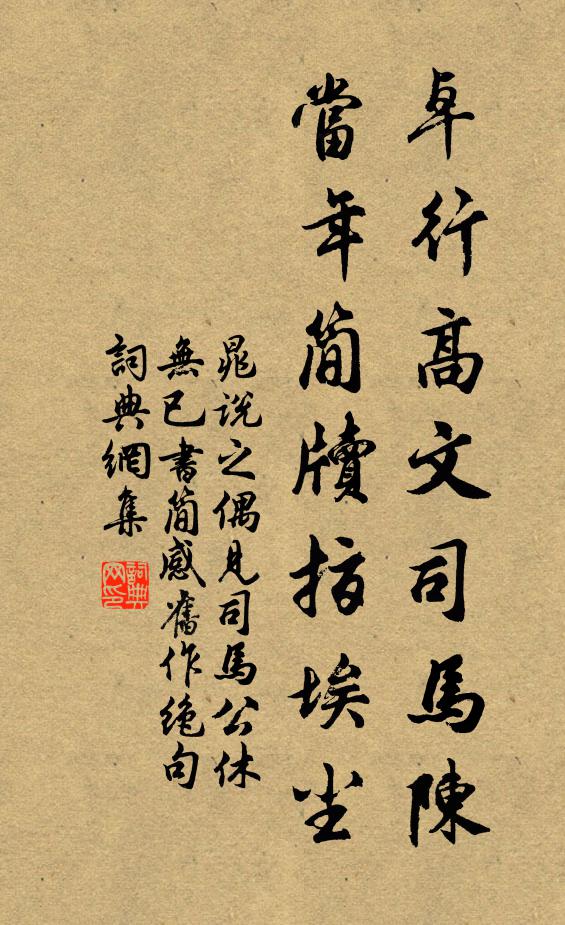 卓行高文司馬陳
當年簡牘埃尘
晁說之偶見司馬公休
無已書簡感舊作絕句
詞典網集
詞典网印